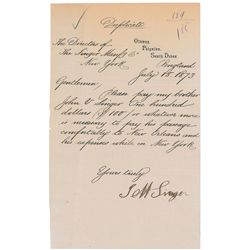 Duplicate
Oldway,
Paignton,
South Devon
England
July 15 1873
The Directors of
The Singer Manfg Co
New York
Gentlemen
Please pay my brother
John V Singer One hundred
dollars $100/ or whatever more
is necessary to pay his passage
comfortably to New Orleans and
his expenses while in New York.
Yours truly
I M Singer